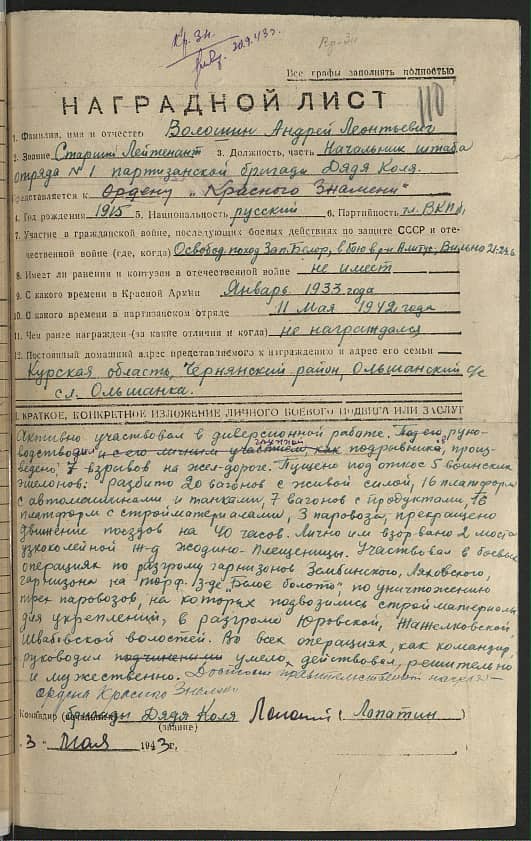 Кр. Зн.
20.9.43г.
Кр. Зн
Все графы заполнять полностью
НАГРАДНОЙ ЛИСТ
110
1. Фамилия, имя и отчество Волошин Андрей Леонтьевич
2. Звание Старший Лейтенант 3. Должность, часть Начальник штаба
отряда №1 партизанской бригады Дядя Коля.
Представляется к Ордену „Красного Знамени"
4. Год рождения 1915 5. Национальность русский 6. Партийность чл. ВКПб,
7. Участие в гражданской войне, последующих боевых действиях по защите СССР и оте-
чественной войне (где, когда) Освобод. поход Зап. Белор, в бою в р-н Алитус-Вильно
8. Имеет ли ранения и контузии в отечественной войне не имеет
9. С какого времени в Красной Армии Январь 1933 года
10. С какого времени в партизанском отряде 11 Мая 1942 года
11. Чем ранее награжден (за какие отличия и когда) не награждался
12. Постоянный домашний адрес представляемого к награждению и адрес его семьи
Курская область, Чернянский район, Ольшанский с/с
сл. Ольшанка.
I. КРАТКОЕ, КОНКРЕТНОЕ ИЗЛОЖЕНИЕ ЛИЧНОГО БОЕВОГО ПОДВИГА ИЛИ ЗАСЛУГ
Активно участвовал в диверсионной работе. Под его руко-
водством и с его личным участием, как подрывника, произ-
ведено 7 взрывов на жел-дороге. Пущено под откос 5 воинских
эшелонов: разбито 20 вагонов с живой силой, 16 платформ
с автомашинами и танками, 7 вагонов с продуктами, 16
платформ с стройматериалами, 3 паровоза, прекращено
движение поездов на 40 часов. Лично им взорвано 2 моста
узкоколейной ж-д Жодино-Плещеницы. Участвовал в боевых
операциях по разгрому гарнизонов Зембинского, Ляховского,
гарнизона на торф. з-де „Белое болото", по уничтожению
трех паровозов, на которых подвозились стройматериалы
для укреплений, в разгроме Юровской, Жажелковской,
Швабовской волостей. Во всех операциях, как командир,
руководил подчиненными умело, действовал, решительно
и мужественно. Достоин правительственной награды—
ордена Красного Знамени
Командир бригады Дядя Коля (Лопатин)
(звание)
„3" Мая 1943г.